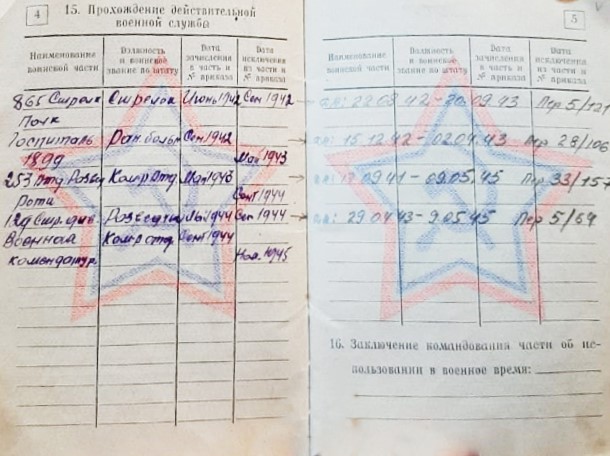 4
15. Прохождение действительной
военной службы
Наименование воинской части
Должность и воинское звание по штату
Дата зачисления в часть и № приказа
Дата исключения из части и № приказа
865 Стрелк Стрелок Июнь 1942 Сен 1942
Полк
Госпиталь Ран. больн Сен 1942
1899 Май 1943
253 отд Развед Ком. отд Май 1943
Роти Сент 1944
129 Стр. див. Разведчик 1944 Сен 1944
Военная Ком отд Сент 1944
комендатур. Ноя. 1945
5
Наименование воинской части
Должность и воинское звание по штату
Дата зачисления в часть и № приказа
Дата исключения из части и № приказа
22.03.42 - 20.09.43 Пер 5/121
15.12.42 - 02.04.43 Пер 28/106
09.41 - 09.05.45 Пер 33/157
29.04.43 - 9.05.45 Пер 5/64
16. Заключение командования части об ис-
пользовании в военное время: